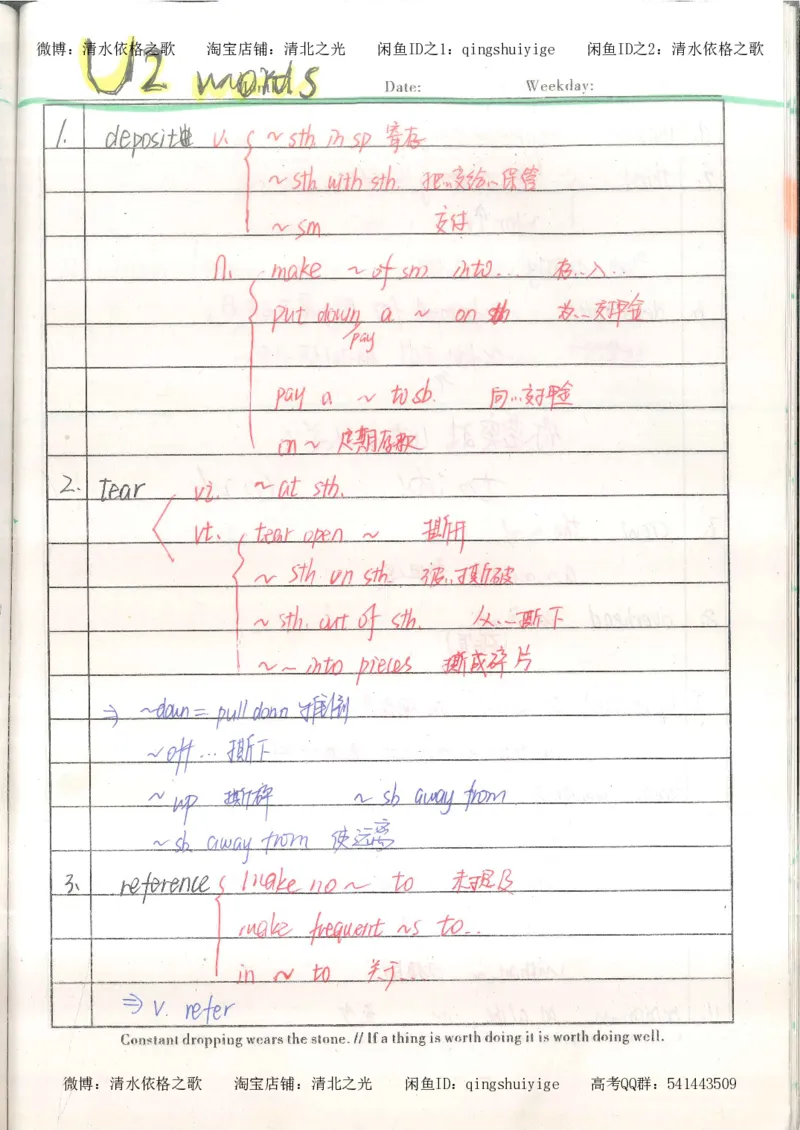 微博：清水依格之歌 淘宝店铺：清北之光 闲鱼ID之1：qingshuiyige 闲鱼ID之2：清水依格之歌
U2 words
Date: Weekday:
1. deposit v. ~ sth in sp 寄存
~ sth with sth. 把…交给…保管
~ sm 交付
n. make ~ of sm into... 存…入…
put down a ~ on sth 为…交押金
pay
pay a ~ to sb. 向…交押金
on ~ 定期存款
2. tear vi. ~ at sth.
vt. tear open ~ 撕开
~ sth on sth. 被…撕破
~ sth. out of sth. 从…撕下
~ ~ into pieces 撕成碎片
⇒ ~down = pull down 推倒
~off … 撕下
~ up 撕碎 ~ sb away from
~ sb away from 使远离
3. reference make no ~ to 未提及
make frequent ~s to...
in ~ to 关于
⇒ v. refer
Constant dropping wears the stone. // If a thing is worth doing it is worth doing well.
微博：清水依格之歌 淘宝店铺：清北之光 闲鱼ID：qingshuiyige 高考QQ群：541443509